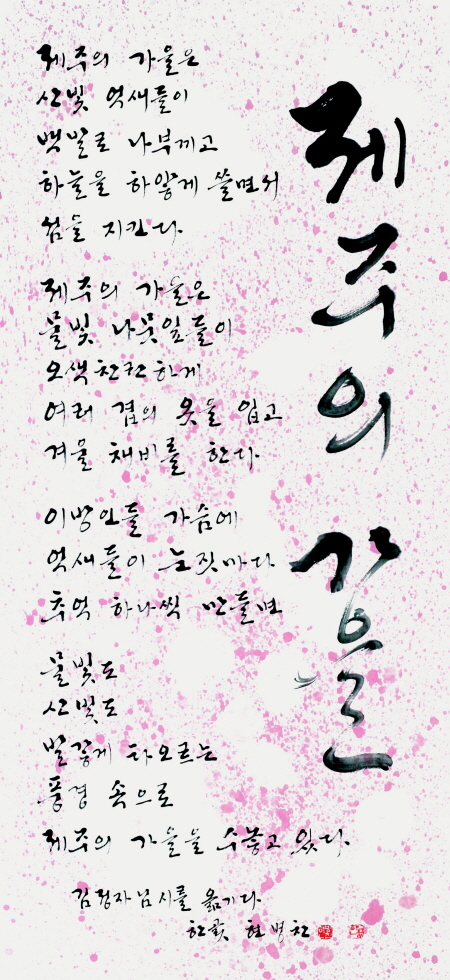 제주의 가을
제주의 가을은
산빛 억새들이
백발로 나부끼고
하늘을 하얗게 쓸면서
섬을 지킨다
제주의 가을은
물빛 나뭇잎들이
오색찬란하게
여러 겹의 옷을 입고
겨울 채비를 한다
이방인들 가슴에
억새들이 눈짓마다
추억 하나씩 만들면
물빛도
산빛도
벌겋게 타오르는
풍경 속으로
제주의 가을을 수놓고 있다
김정자님 시를 옮기다
한곬 현병찬